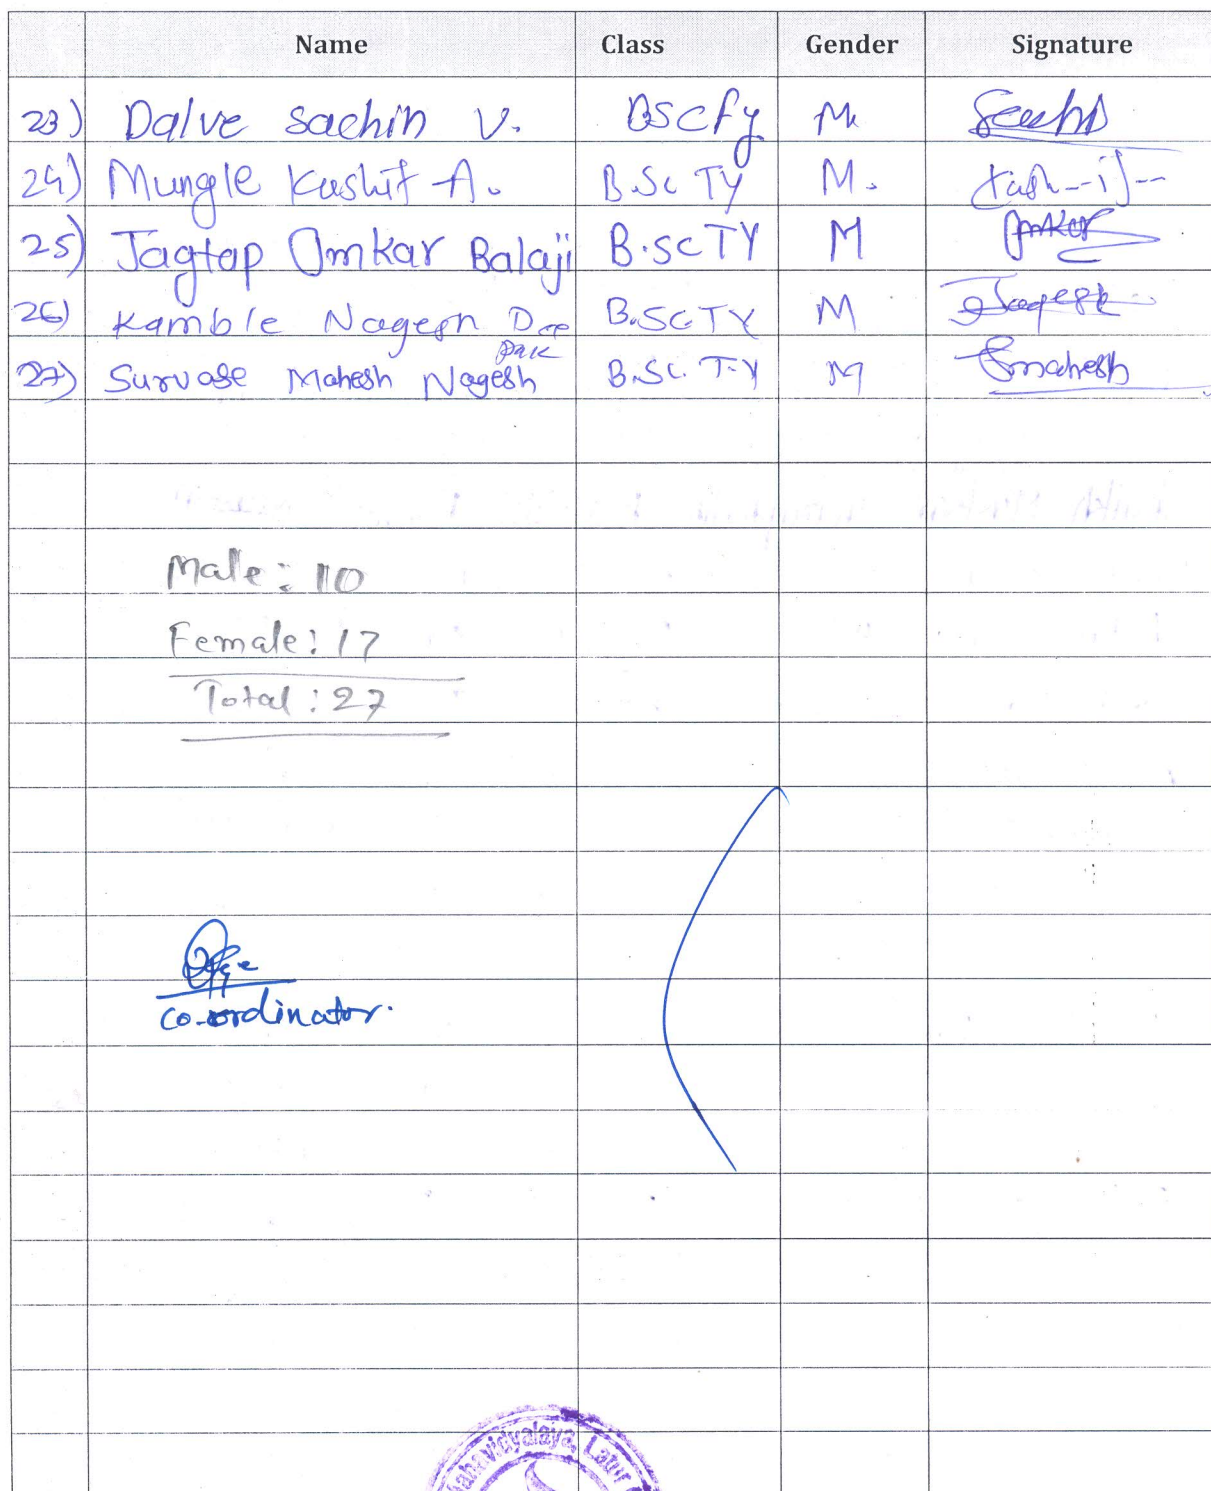 Name Class Gender Signature
23) Dalve sachin V. BSC fy M
24) Mungle Kashif A. B.Sc TY M. Kash--if--
25) Jagtap Omkar Balaji B.sc TY M Omkar
26) Kamble Nagesh Dee B.SC.TY M Nagesh
pak
27) Survase Mahesh Nagesh B.Sc. T.Y M Smahesh
Male: 10
Female: 17
Total: 27
co-ordinator.
Mahavidyalaya, Latur